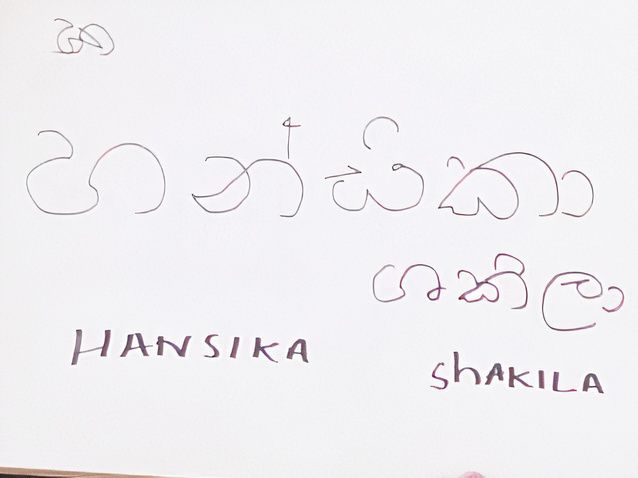 හන්සිකා
ශකිලා
HANSIKA
ShAKILA